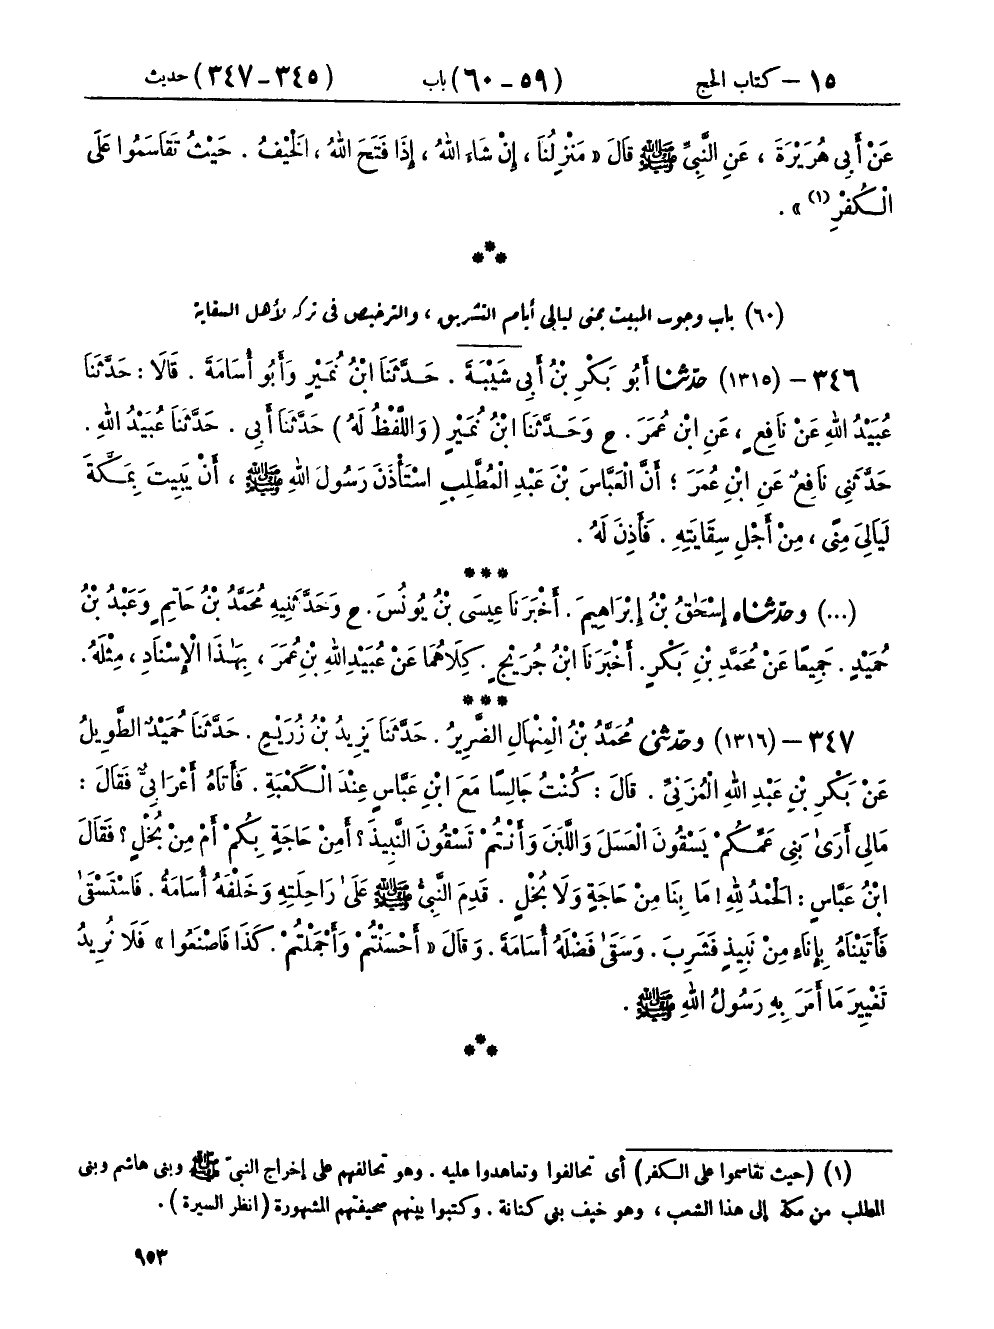 ١٥ – كتاب الحج (٥٩ – ٦٠) باب (٣٤٥ – ٣٤٧) حديث
عَنْ أَبِي هُرَيْرَةَ ، عَنِ النَّبِيِّ ﷺ قَالَ « مَنْزِلُنَا ، إِنْ شَاءَ اللهُ ، إِذَا فَتَحَ اللهُ ، الْخَيْفُ . حَيْثُ تَقَاسَمُوا عَلَى
الْكُفْرِ (١) » .
(٦٠) باب وجوب المبيت بمنى ليالى أيام التشريق ، والترخيص فى تركه لأهل السقاية
٣٤٦ – (١٣١٥) حدّثنا أَبُو بَكْرِ بْنُ أَبِي شَيْبَةَ . حَدَّثَنَا ابْنُ نُمَيْرٍ وَأَبُو أُسَامَةَ . قَالَا : حَدَّثَنَا
عُبَيْدُ اللهِ عَنْ نَافِعٍ ، عَنِ ابْنِ عُمَرَ . ح وَحَدَّثَنَا ابْنُ نُمَيْرٍ ( وَاللَّفْظُ لَهُ ) حَدَّثَنَا أَبِي . حَدَّثَنَا عُبَيْدُ اللهِ .
حَدَّثَنِي نَافِعٌ عَنِ ابْنِ عُمَرَ ؛ أَنَّ الْعَبَّاسَ بْنَ عَبْدِ الْمُطَّلِبِ اسْتَأْذَنَ رَسُولَ اللهِ ﷺ ، أَنْ يَبِيتَ بِمَكَّةَ
لَيَالِيَ مِنًى ، مِنْ أَجْلِ سِقَايَتِهِ . فَأَذِنَ لَهُ .
(...) وحدّثناه إِسْحَٰقُ بْنُ إِبْرَاهِيمَ . أَخْبَرَنَا عِيسَى بْنُ يُونُسَ . ح وَحَدَّثَنِيهِ مُحَمَّدُ بْنُ حَاتِمٍ وَعَبْدُ بْنُ
حُمَيْدٍ . جَمِيعًا عَنْ مُحَمَّدِ بْنِ بَكْرٍ . أَخْبَرَنَا ابْنُ جُرَيْجٍ . كِلَاهُمَا عَنْ عُبَيْدِ اللهِ بْنِ عُمَرَ ، بِهَٰذَا الْإِسْنَادِ ، مِثْلَهُ .
٣٤٧ – (١٣١٦) وحدّثنى مُحَمَّدُ بْنُ الْمِنْهَالِ الضَّرِيرُ . حَدَّثَنَا يَزِيدُ بْنُ زُرَيْعٍ . حَدَّثَنَا حُمَيْدٌ الطَّوِيلُ
عَنْ بَكْرِ بْنِ عَبْدِ اللهِ الْمُزَنِيِّ . قَالَ : كُنْتُ جَالِسًا مَعَ ابْنِ عَبَّاسٍ عِنْدَ الْكَعْبَةِ . فَأَتَاهُ أَعْرَابِيٌّ فَقَالَ :
مَالِي أَرَىٰ بَنِي عَمِّكُمْ يَسْقُونَ الْعَسَلَ وَاللَّبَنَ وَأَنْتُمْ تَسْقُونَ النَّبِيذَ ؟ أَمِنْ حَاجَةٍ بِكُمْ أَمْ مِنْ بُخْلٍ ؟ فَقَالَ
ابْنُ عَبَّاسٍ : الْحَمْدُ لِلهِ ! مَا بِنَا مِنْ حَاجَةٍ وَلَا بُخْلٍ . قَدِمَ النَّبِيُّ ﷺ عَلَىٰ رَاحِلَتِهِ وَخَلْفَهُ أُسَامَةُ . فَاسْتَسْقَىٰ
فَأَتَيْنَاهُ بِإِنَاءٍ مِنْ نَبِيذٍ فَشَرِبَ . وَسَقَىٰ فَضْلَهُ أُسَامَةَ . وَقَالَ « أَحْسَنْتُمْ وَأَجْمَلْتُمْ . كَذَا فَاصْنَعُوا » فَلَا نُرِيدُ
تَغْيِيرَ مَا أَمَرَ بِهِ رَسُولُ اللهِ ﷺ .
(١) (حيث تقاسموا على الكفر) أى تحالفوا وتعاهدوا عليه . وهو تحالفهم على إخراج النبىّ ﷺ وبنى هاشم وبنى
المطلب من مكة إلى هذا الشعب ، وهو خيف بنى كنانة . وكتبوا بينهم صحيفتهم المشهورة (انظر السيرة) .
٩٥٣